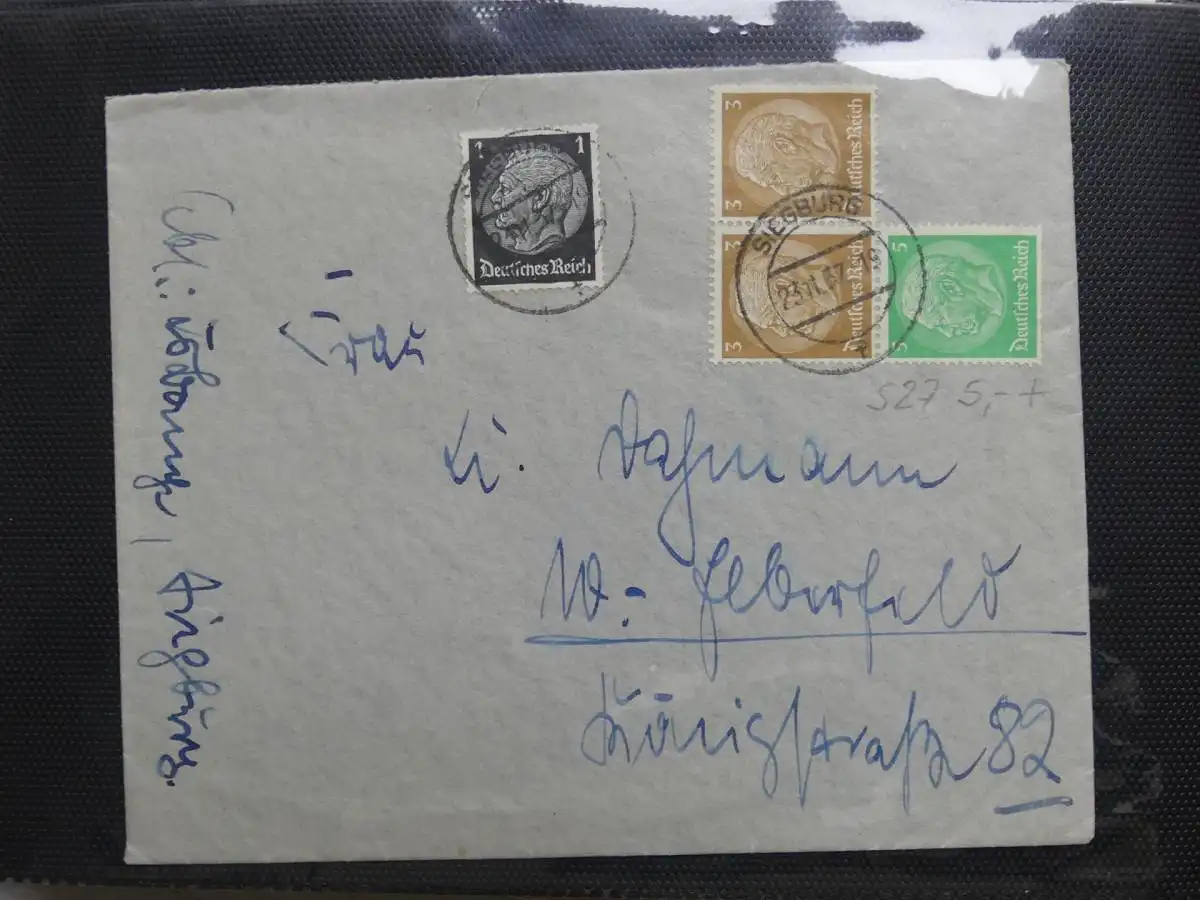 1 1
Deutsches Reich
3
Deutsches Reich
3 3
Deutsches Reich
5 5
Deutsches Reich
SIEGBURG
23.11.37
S27 5,-+
Frau
Li. Dahmann
W.-Elberfeld
Königstraße 82
Siegburg.